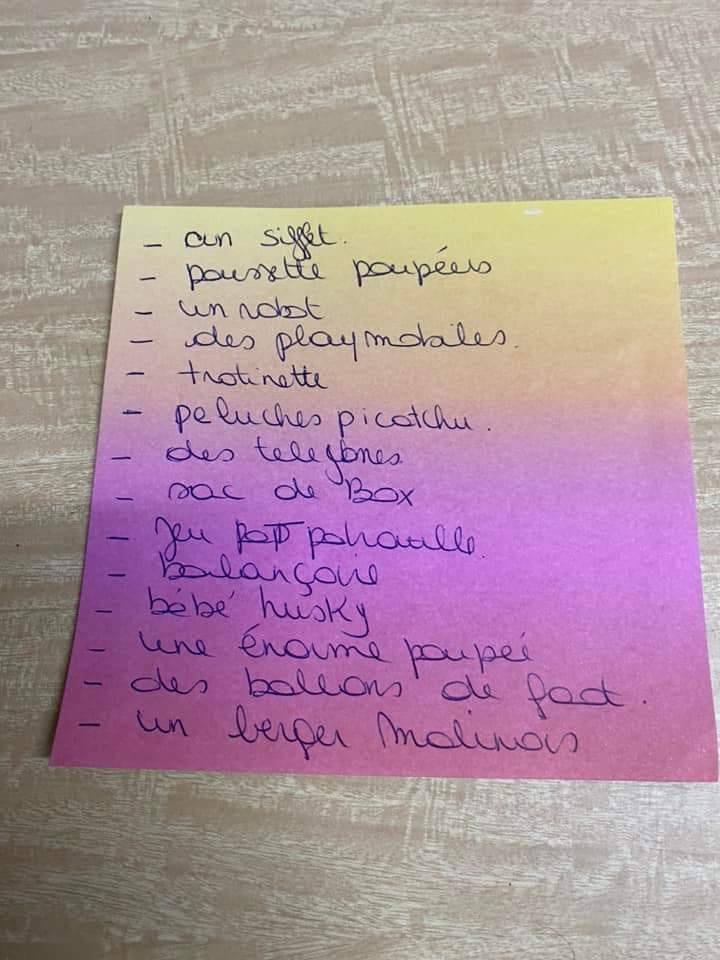 - un sifflet.
- poussette poupées
- un robot
- des playmobiles.
- trotinette
- peluches picatchu.
- des telefones
- sac de Box
- jeu patt patrouille.
- balançoire
- bébé husky
- une énorme poupeé
- des ballons de foot.
- un berger Malinois